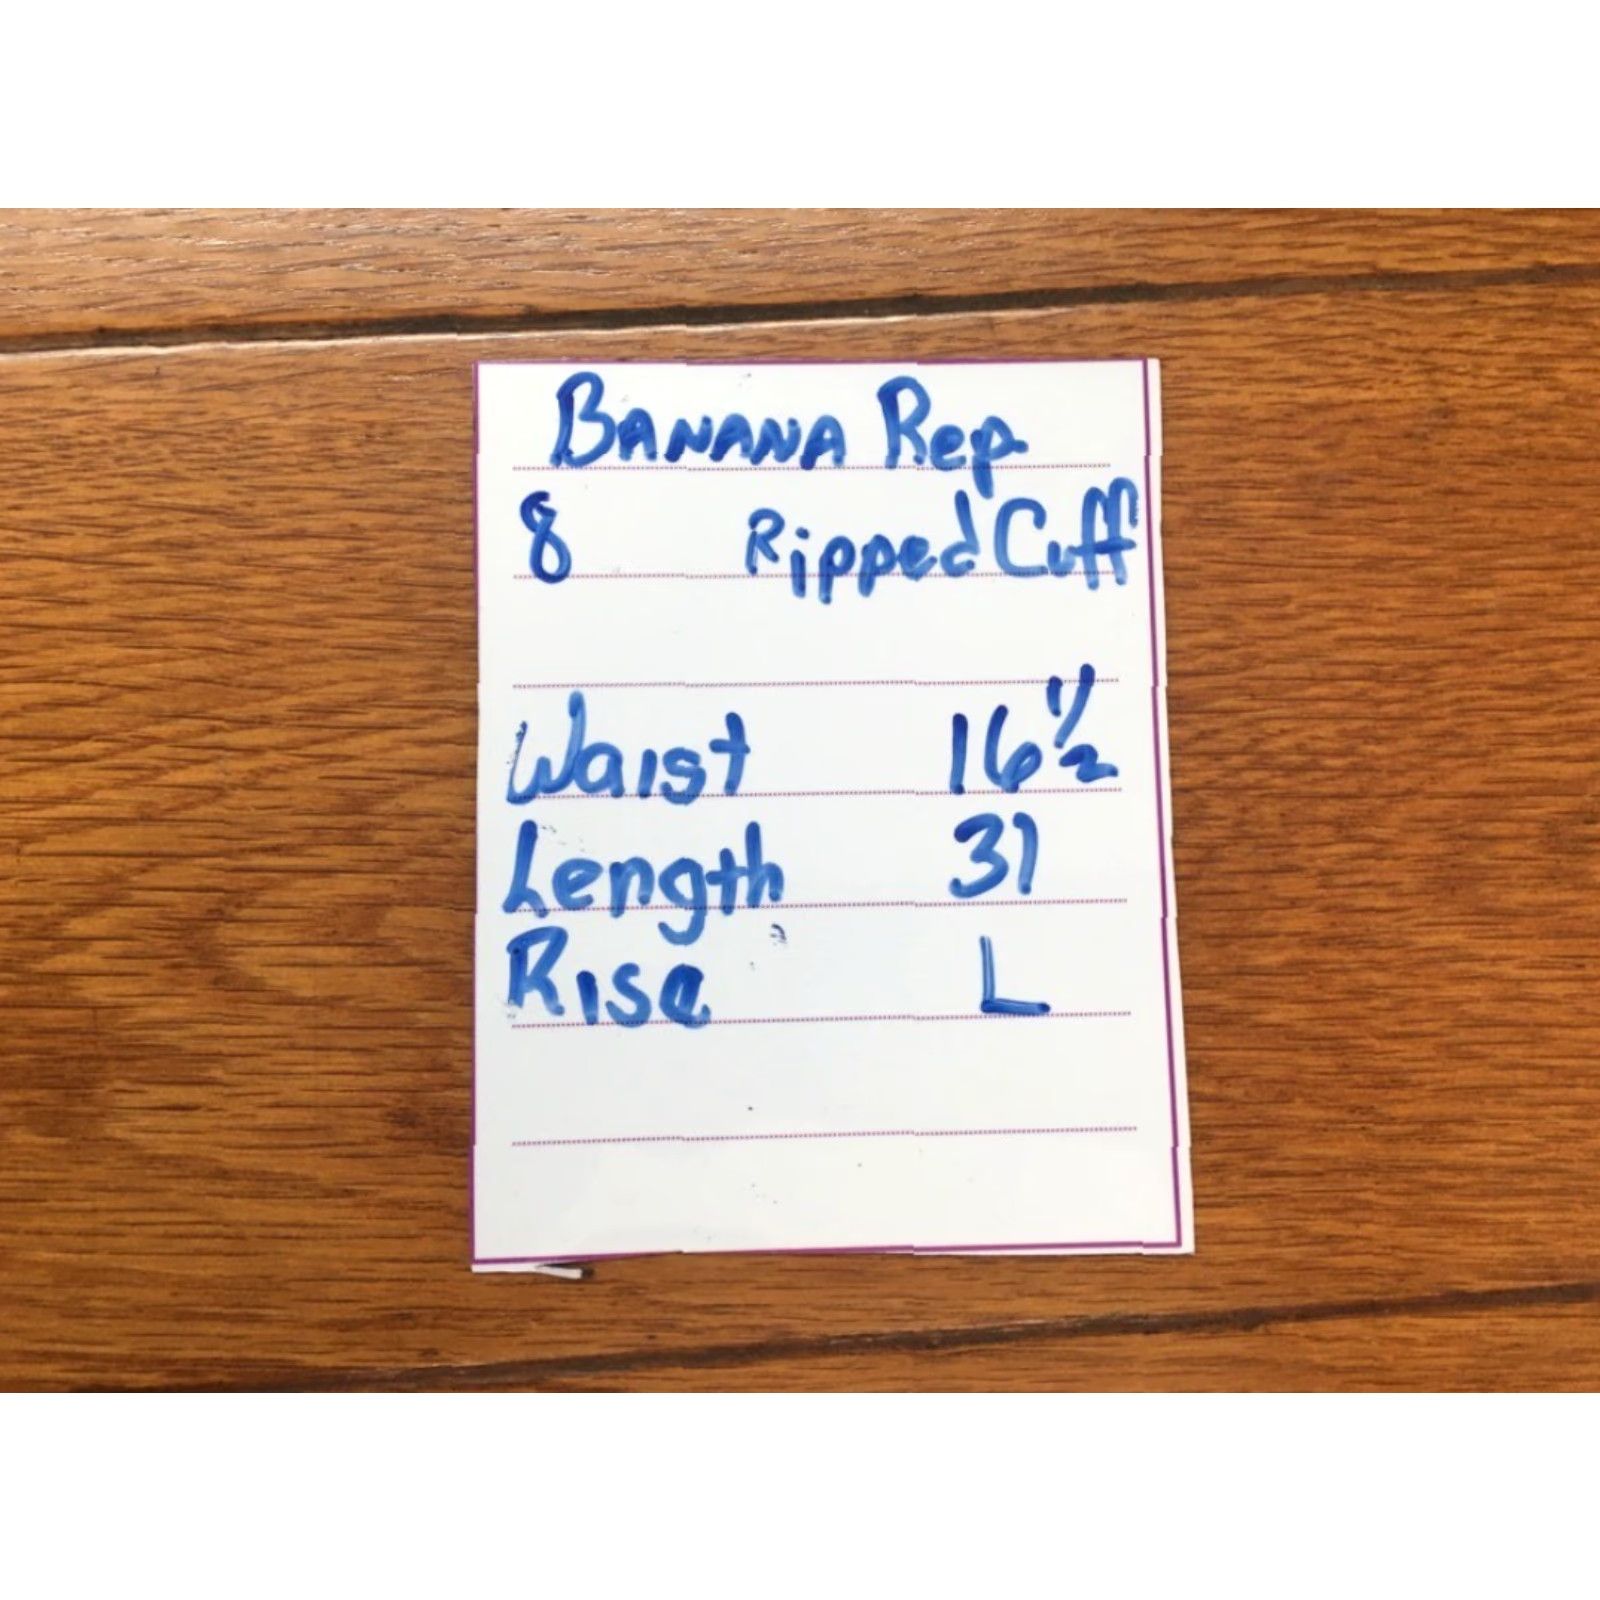 BANANA Rep
8 Ripped Cuff
Waist 16 1/2
Length 31
Rise L